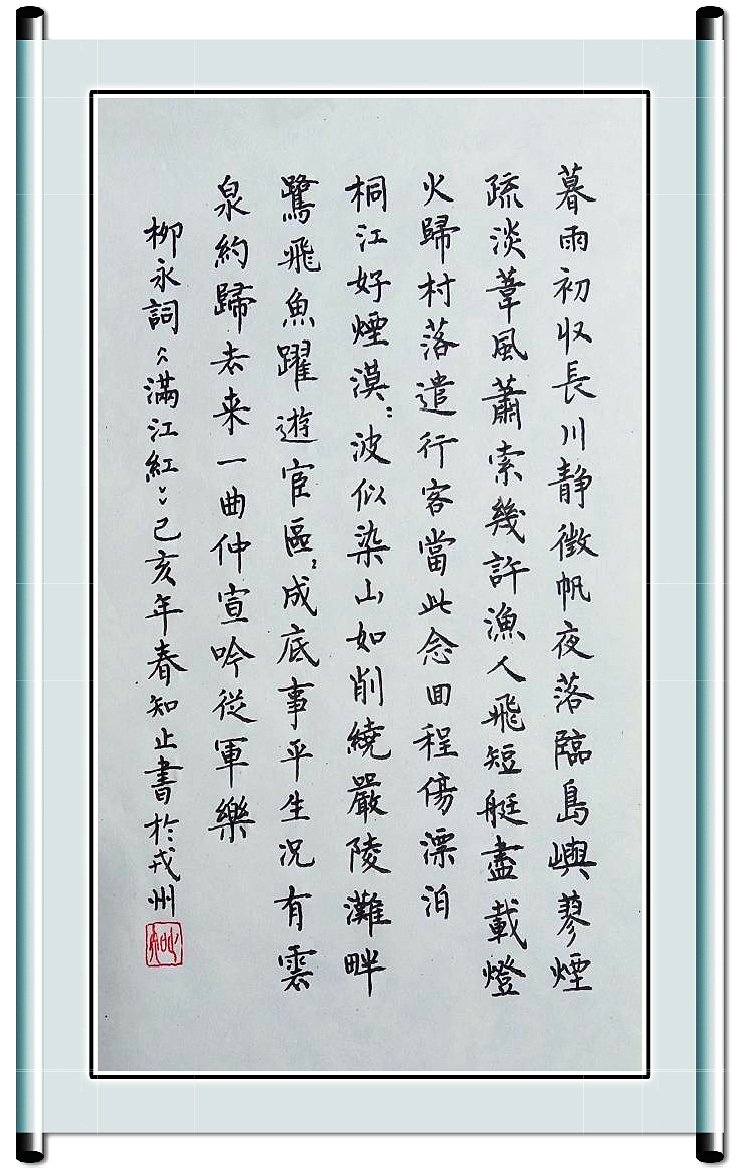 暮雨初収長川靜徵帆夜落臨島嶼蓼煙
疏淡葦風蕭索幾許漁人飛短艇盡載燈
火歸村落遣行客當此念回程傷漂泊
桐江好煙漠〻波似染山如削繞嚴陵灘畔
鷺飛魚躍遊宦區〻成底事平生況有雲
泉約歸去来一曲仲宣吟從軍樂
柳永詞︽滿江紅︾己亥年春知止書於戎州